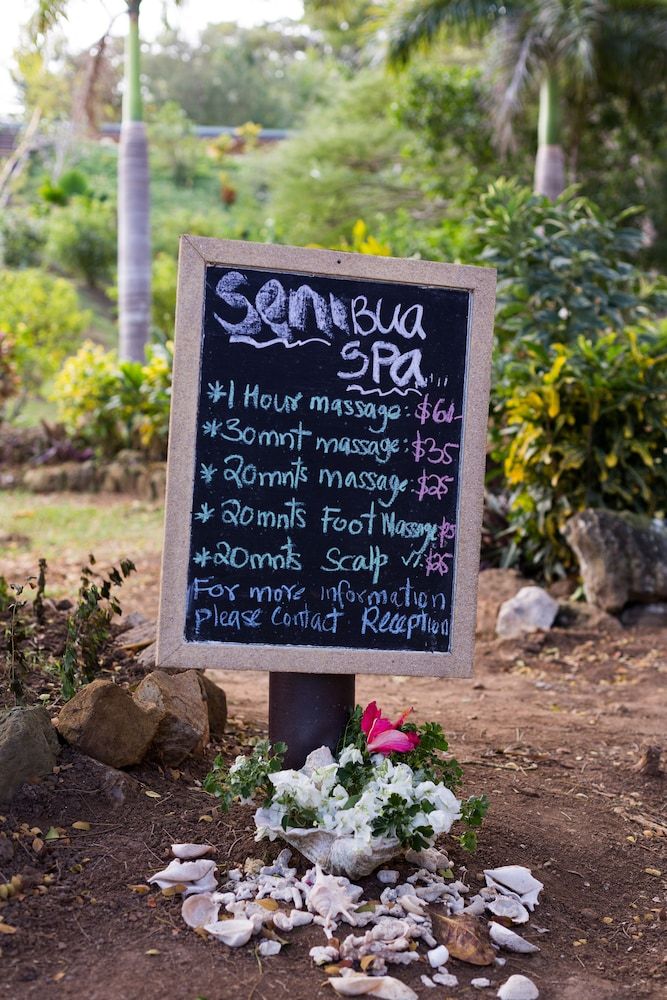 SeniBua
Spa...
*1 Hour massage:
*30mnt massage: $35
*20mnts massage: $25
*20mnts Foot Massage
*20mnts Scalp $25
For more Information
please Contact Reception